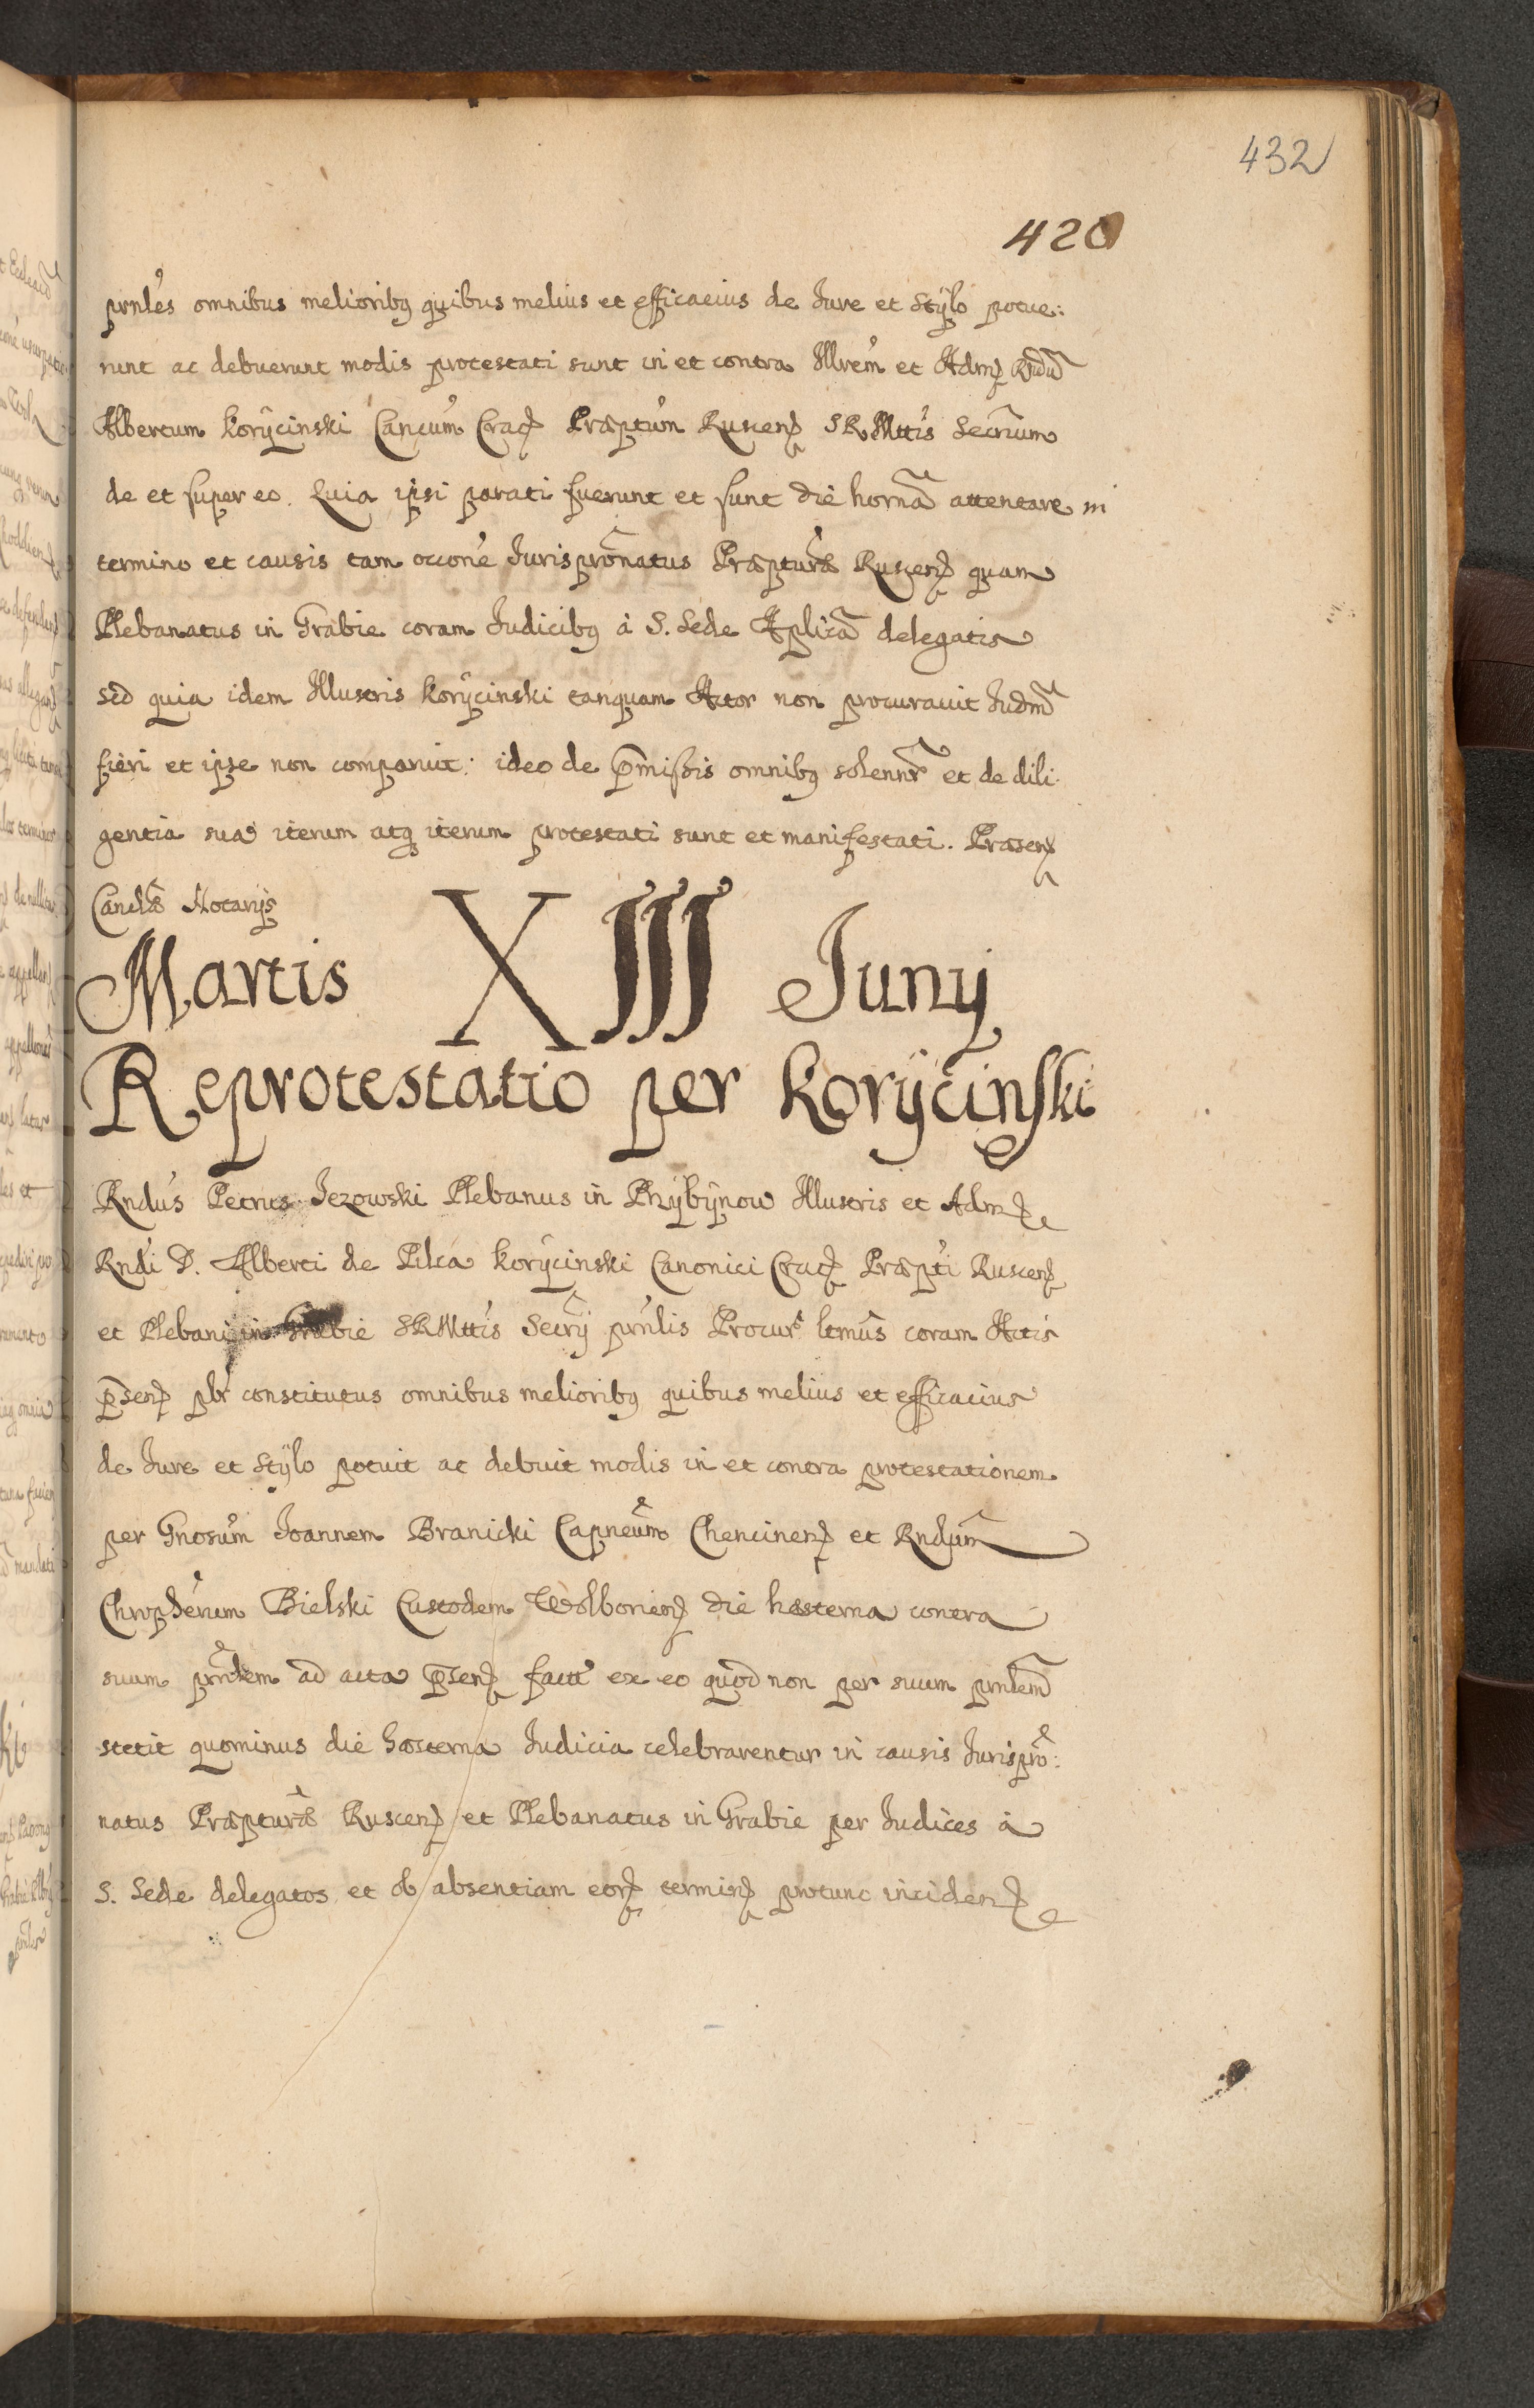 432
420
prnles omnibus melioribq quibus melius et efficacius de Jure et Stÿlo potue:
runt ac debuerunt modis protestati sunt in et contra Illrem et Adm Rndu
Albertum Korÿcinski Cancum Crac Præptum Ruscen S R Mttis Secrium
de et super eo. Quia ipsi parati fuerunt et sunt die horna attentare in
termino et causis tam occone Jurispronatus Præpturæ Ruscen quam
Plebanatus in Grabie coram Judicibq à S. Sede Aplica delegatis
sed quia idem Illustris Korÿcinski tanquam Actor non procuravit Judm
fieri et ipse non comparuit: ideo de pmissis omnibq solennr et de dili:
gentia sua iterum atq iterum protestati sunt et manifestati. Præsen
Canclæ Notarijs
Martis XIII Junij
Reprotestatio per Korÿcinski
Rndus Petrus Jezowski Plebanus in Przÿbÿnow Illustris et Adm
Rndi D. Alberti de Pilca Korÿcinski Canonici Crac Præpti Ruscen
et Plebani in Grabie SRMttis Secrij prnlis Procur ltmus coram Actis
psen pbr constitutus omnibus melioribq quibus melius et efficacius
de Jure et Stÿlo potuit ac debuit modis in et contra protestationem
per Gnosum Joannem Branicki Capneum Chencinen et Rndum
Chrvpherum Bielski Custodem Wolborien die hesterna contra
suum prnlem ad acta psen factt ex eo quod non per suum prnlem
stetit quominus die hesterna Judicia celebrarentur in causis Jurispro:
natus Præpturæ Ruscen et Plebanatus in Grabie per Judices à
S. Sede delegatos et ob absentiam eor termin protunc inciden